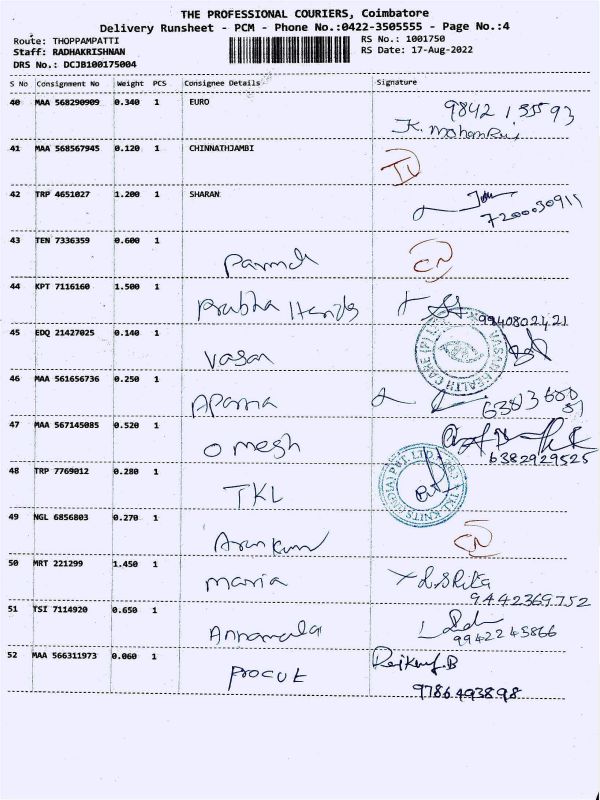 THE PROFESSIONAL COURIERS, Coimbatore
Delivery Runsheet - PCM - Phone No.:0422-3505555 - Page No.:4
Route: THOPPAMPATTI RS No.: 1001750
Staff: RADHAKRISHNAN RS Date: 17-Aug-2022
DRS No.: DCJB100175004
S No Consignment No Weight PCS Consignee Details Signature
40 MAA 568290909 0.340 1 EURO 9842135593
K. Mohan
41 MAA 568567945 0.120 1 CHINNATHJAMBI
42 TRP 4651027 1.200 1 SHARAN
7200030911
43 TEN 7336359 0.600 1 CN
44 KPT 7116160 1.500 1 Prabha 9940802421
45 EDQ 21427025 0.140 1 Vasan VASAN HEALTH CARE (P) LTD
46 MAA 561656736 0.250 1 Aparna 6383600
47 MAA 567145085 0.520 1 Omesh
6382929525
48 TRP 7769012 0.280 1 TKL TKL KNITS (INDIA) PVT. LTD.
49 NGL 6856803 0.270 1 Arunkumr CN
50 MRT 221299 1.450 1 maria
9442369752
51 TSI 7114920 0.650 1 Annamala
9942245866
52 MAA 566311973 0.060 1 procut B
9786493898